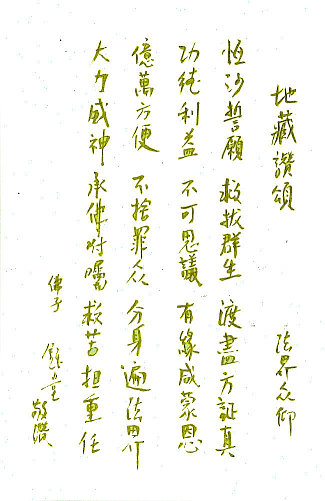 地藏讚頌 法界众仰
恆沙誓願 救拔群生 渡盡方証真
功德利益 不可思議 有緣咸蒙恩
億萬方便 不捨罪众 分身遍法界
大力威神 承佛咐囑 救苦担重任
佛子 敬讚